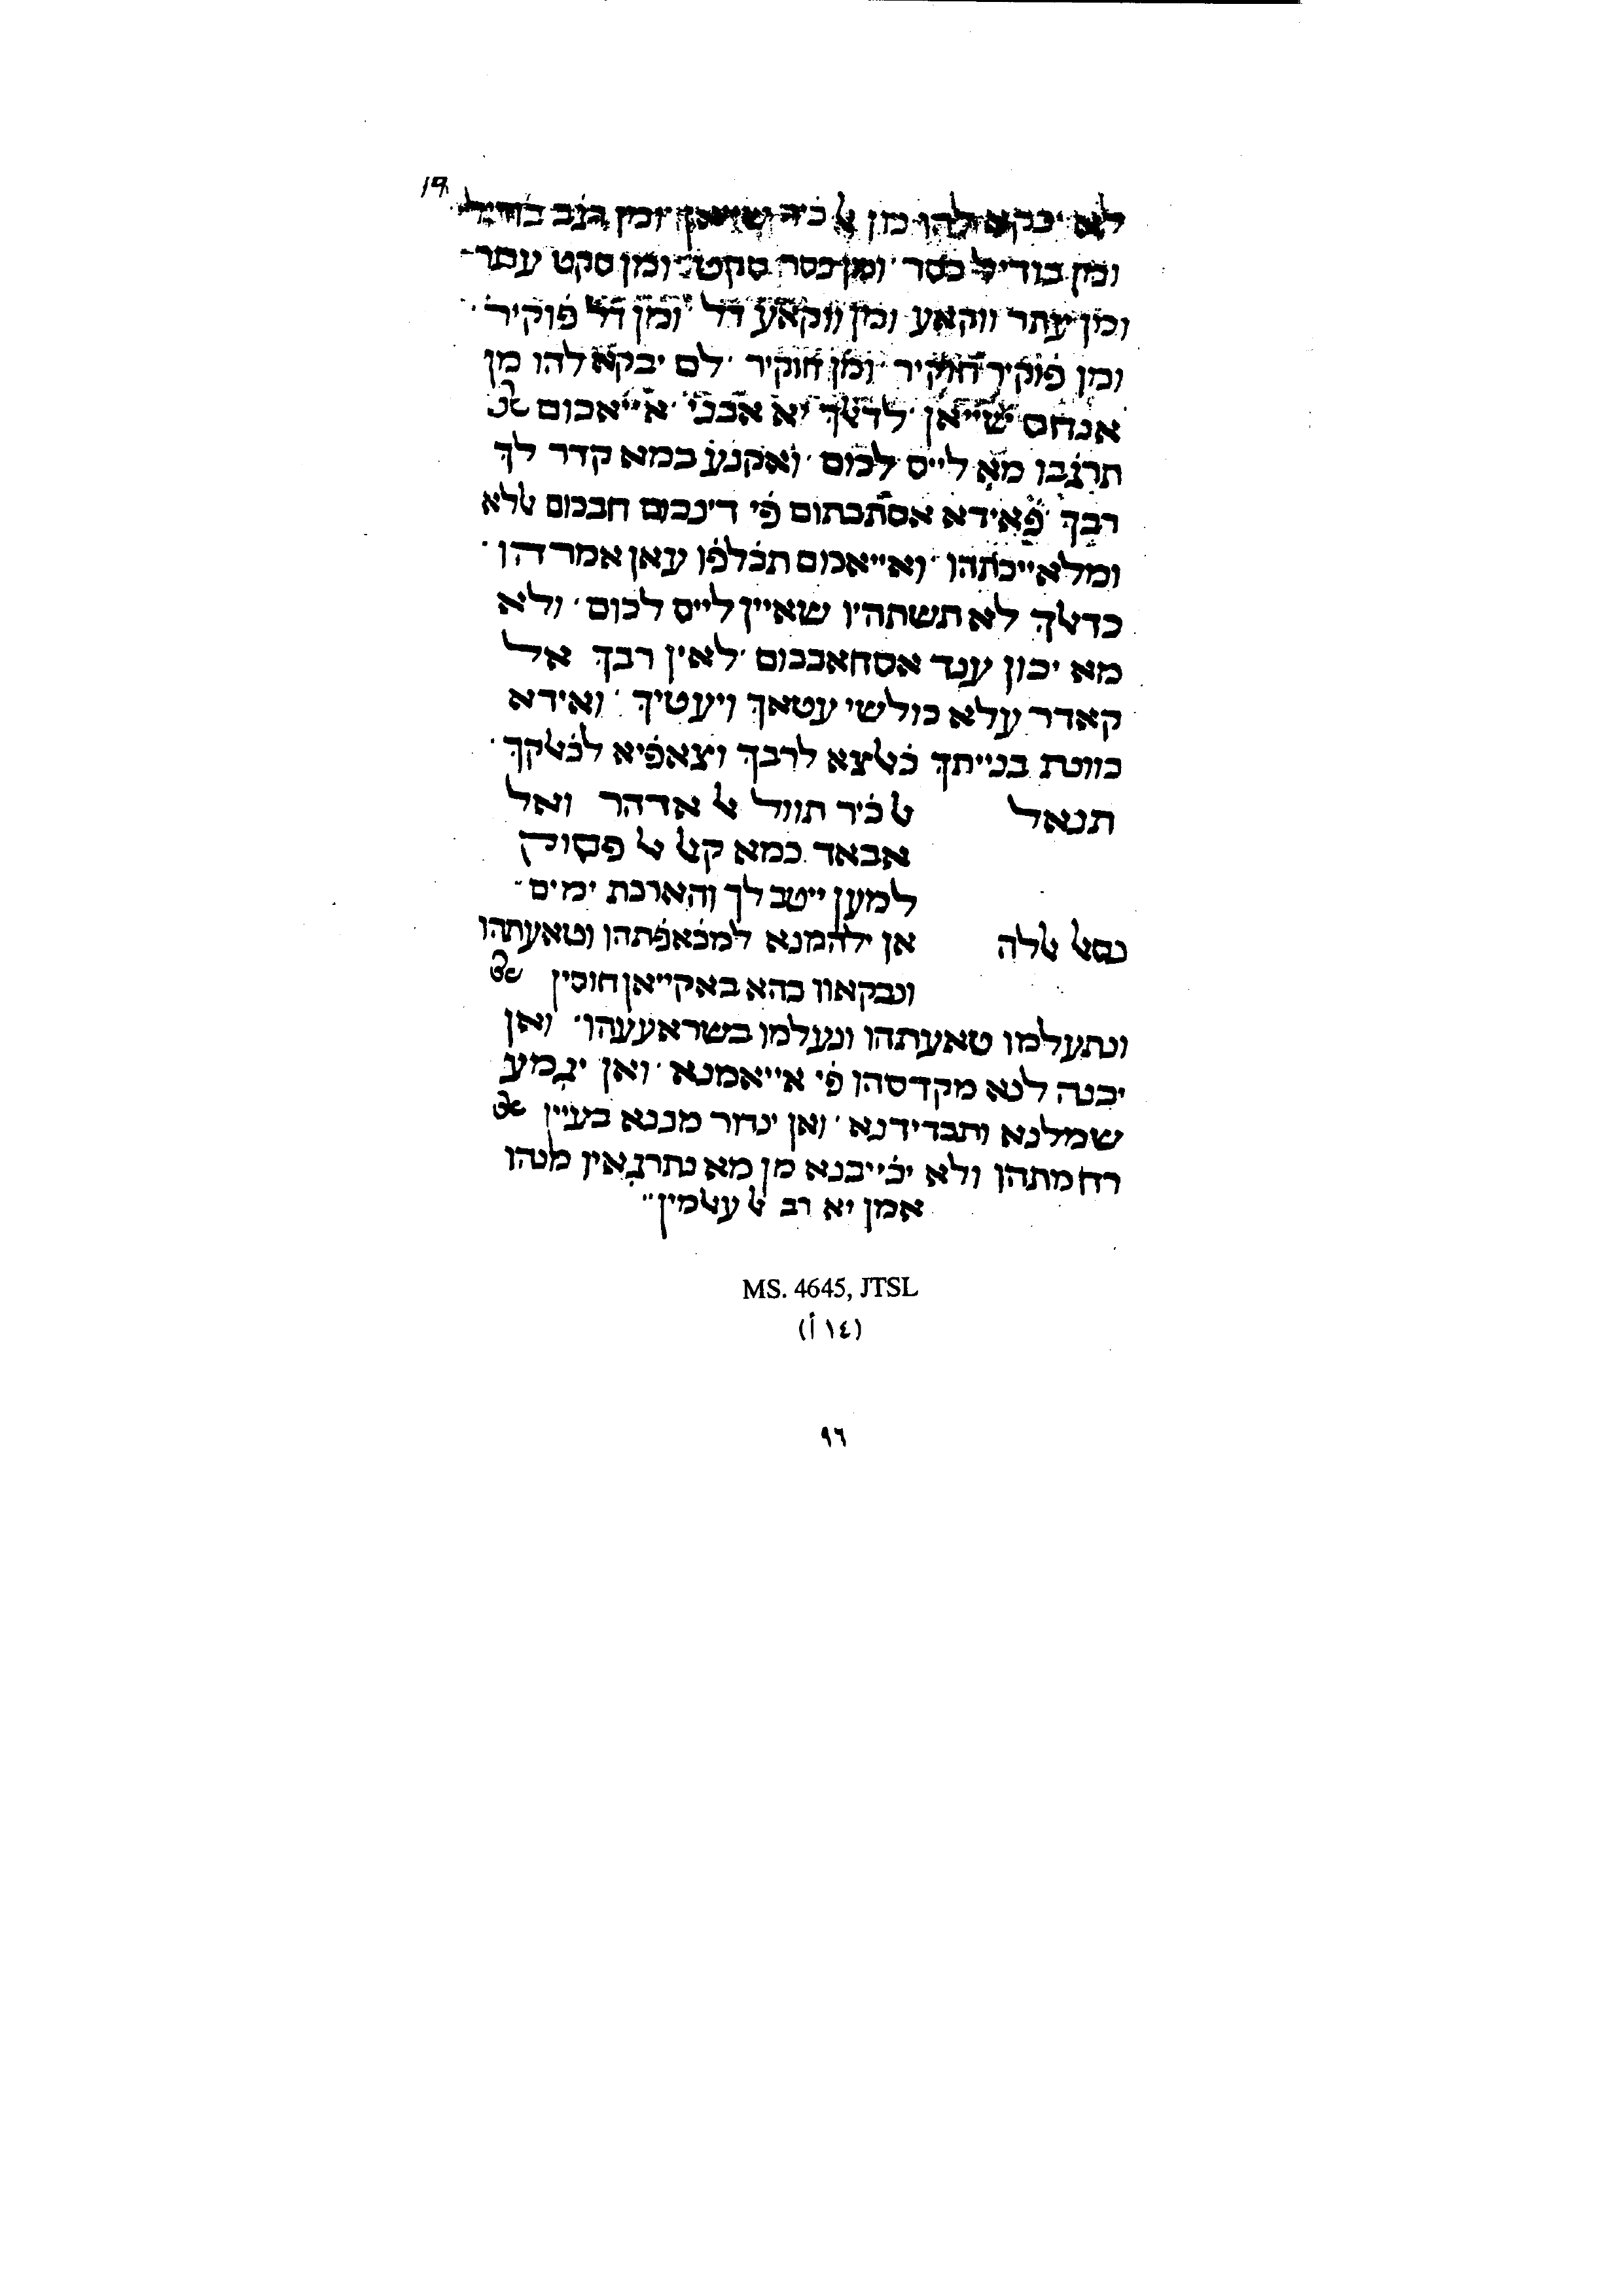 19
לא יבקא להו מן ﭏכיר שייאן ומן גנב בודיל
ומן בודיל כסר ומן כסר סקט ומן סקט עתר
ומן עתר ווקאע ומן ווקאע דל ומן דל פוקיר
ומן פוקיר חוקיר ומן חוקיר לם יבקא להו מן
אנחס שייאן לדﭏך יא אבני אייאכום
תרגבו מא לייס לכום ואקנע במא קדר לך
רבך פאידא אסתבתום פי דינכום חבכום ﭏלא
ומלאייכתהו ואייאכום תכלפו עאן אמרהו
כדﭏך לא תשתהיו שאיין לייס לכום ולא
מא יכון ענד אסחאבכום לאין רבך אל
קאדר עלא כולשי עטאך ויעטיך ואידא
כוונת בנייתך כﭏצא לרבך וצאפיא לכﭏקך
תנאל ﭏכיר תוול ﭏאדהר ואל
אבאד כמא קﭏ ﭏפסוק
למען ייטב לך והארכת ימים
נסﭏ ﭏלה אן ילהמנא למכאפתהו וטאעתהו
ונבקאוו בהא באקייאן חוסין
ונתעלמו טאעתהו ונעלמו בשראעעהו ואן
יבנה לנא מקדסהו פי אייאמנא ואן יגמע
שמלנא ותבדידנא ואן ינזור מננא בעיין
רחמתהו ולא יכייבנא מן מא נתרגאין מנהו
אמן יא רב ﭏעﭏמין
MS. 4645, JTSL
(١٤ أ)
٩٦